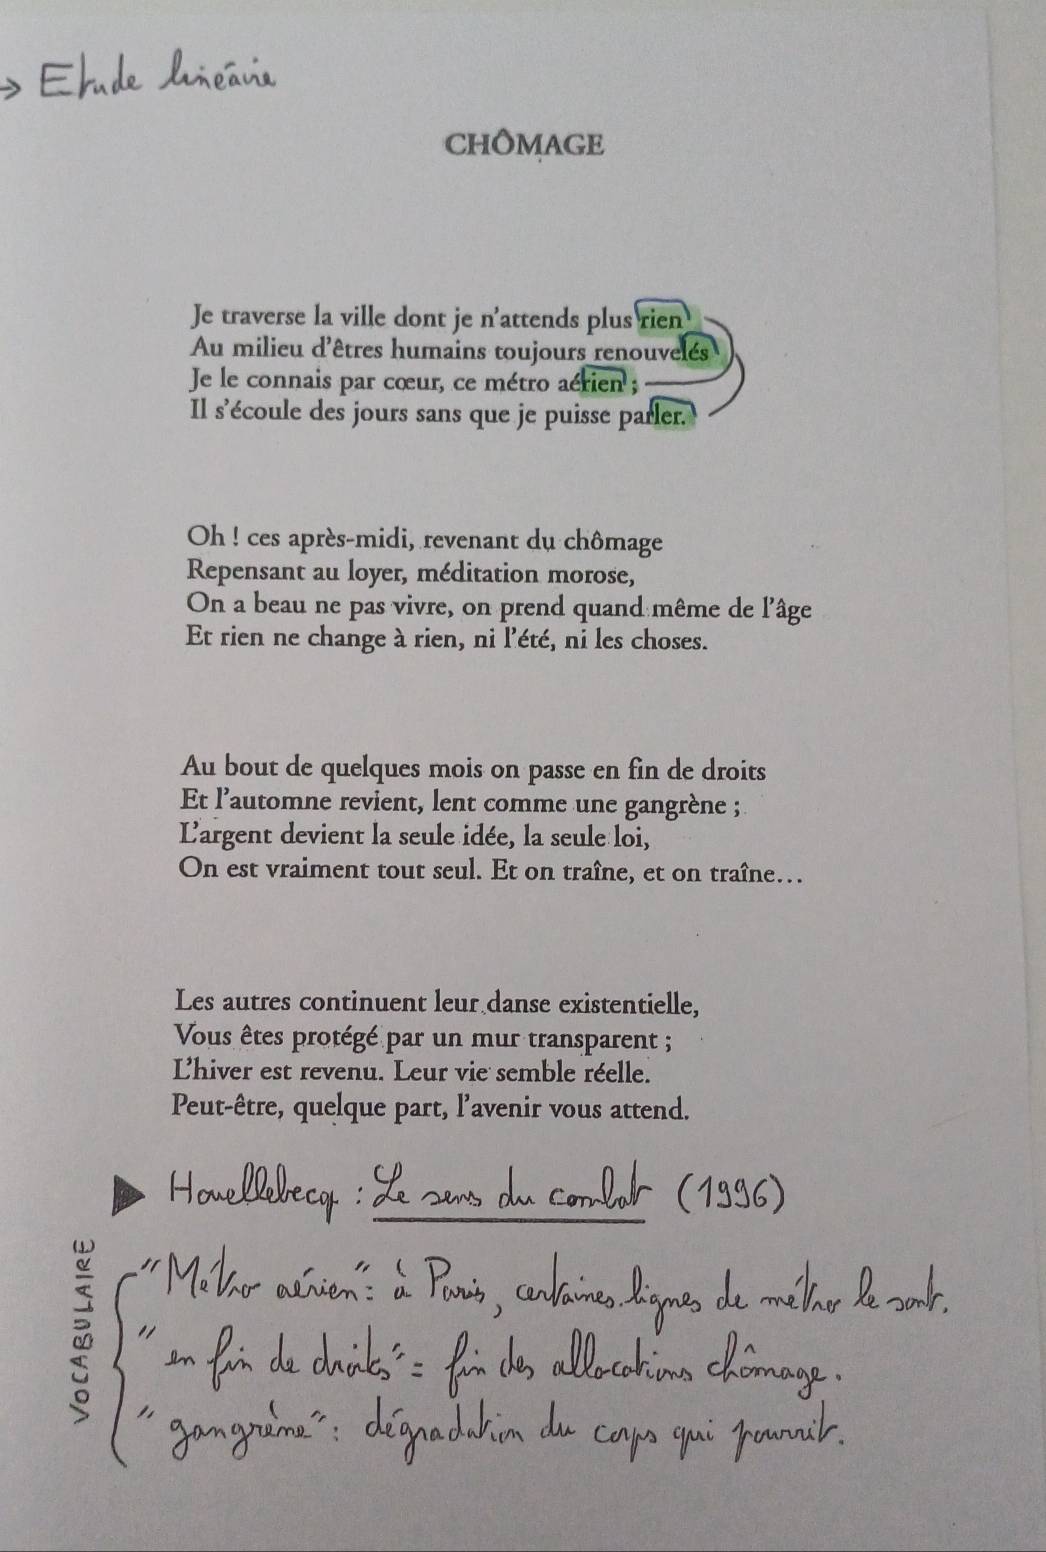 → Etude linéaire
CHÔMAGE
Je traverse la ville dont je n'attends plus rien
Au milieu d'êtres humains toujours renouvelés
Je le connais par cœur, ce métro aérien ;
Il s'écoule des jours sans que je puisse parler.
Oh ! ces après-midi, revenant du chômage
Repensant au loyer, méditation morose,
On a beau ne pas vivre, on prend quand même de l'âge
Et rien ne change à rien, ni l'été, ni les choses.
Au bout de quelques mois on passe en fin de droits
Et l'automne revient, lent comme une gangrène ;
L'argent devient la seule idée, la seule loi,
On est vraiment tout seul. Et on traîne, et on traîne...
Les autres continuent leur danse existentielle,
Vous êtes protégé par un mur transparent ;
L'hiver est revenu. Leur vie semble réelle.
Peut-être, quelque part, l'avenir vous attend.
Houellebecq : Le sens du combat (1996)
VOCABULAIRE
"Métro aérien" : à Paris, certaines lignes de métro le sont.
"en fin de droits" = fin des allocations chômage.
"gangrène" : dégradation du corps qui pourrit.